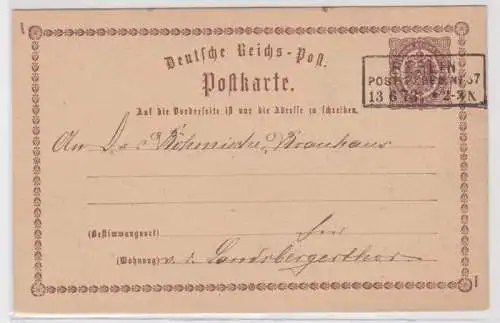 Deutsche Reichs-Post.
Postkarte.
BERLIN
POST
13 6 73 * 2-3N
Auf die Vorderseite ist nur die Adresse zu schreiben.
An D. Böhmische Brauhaus
(Bestimmungsort) hier
(Wohnung) v. d. Landsbergerthor.